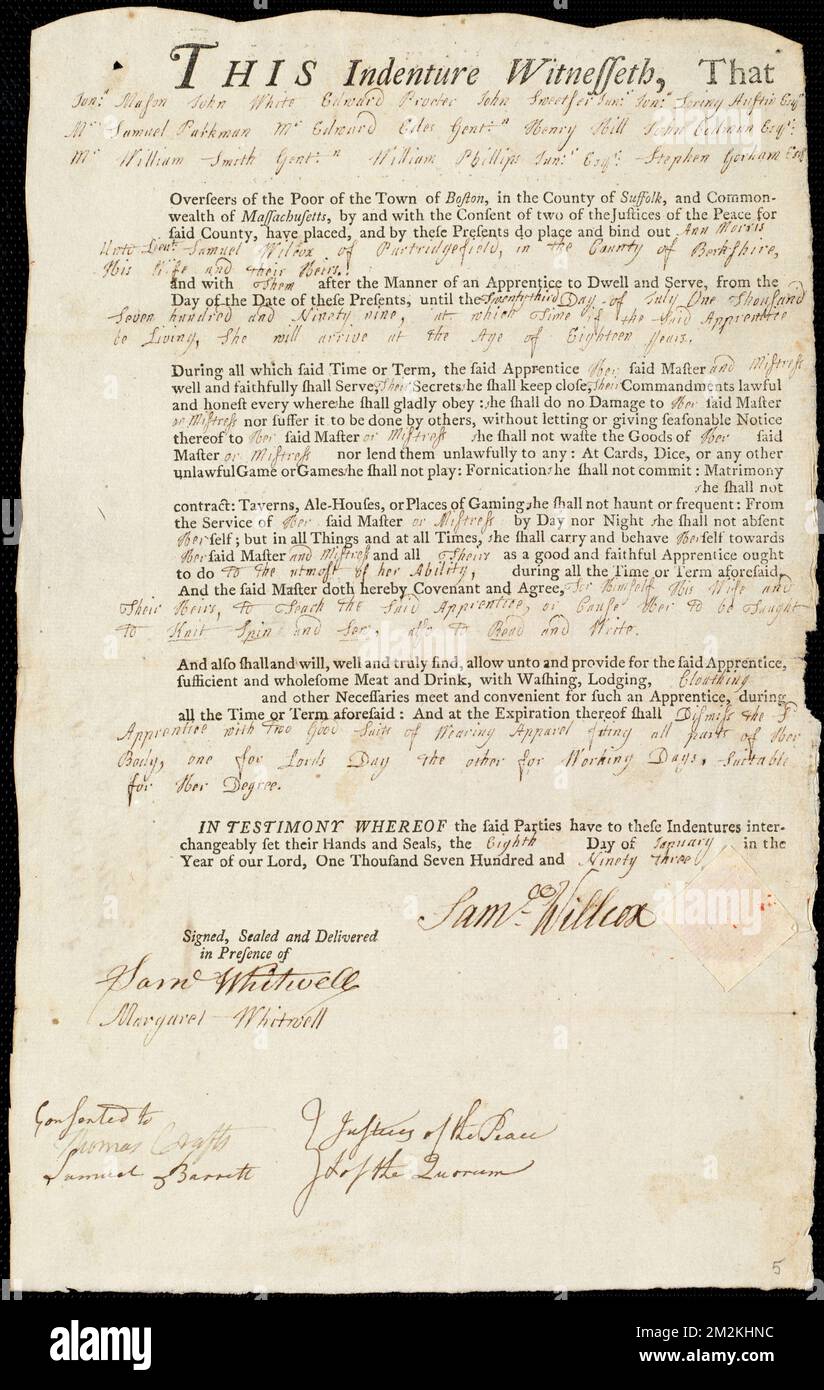 THIS Indenture Witnesseth, That
Jonn Mason John White Edward Procter John Sweetser Junr Jonn Loring Austin Esqr
Mr Samuel Parkman Mr Edward Edes Gentn Henry Hill John Codman Esqr
Mr William Smith Gentn William Phillips Junr Esqr Stephen Gorham Esqr
Overseers of the Poor of the Town of Boston, in the County of Suffolk, and Common-
wealth of Massachusetts, by and with the Consent of two of the Justices of the Peace for
said County, have placed, and by these Presents do place and bind out Ann Morris
Unto Lieut Samuel Wilcox of Partridgefield, in the County of Berkshire,
His Wife and their Heirs.
and with Them after the Manner of an Apprentice to Dwell and Serve, from the
Day of the Date of these Presents, until the Twenty third Day of July One Thousand
Seven hundred and Ninety nine, at which Time if the said Apprentice
be Living, She will arrive at the Age of Eighteen Years.
During all which said Time or Term, the said Apprentice Her said Master and Mistress
well and faithfully shall Serve, Their Secrets she shall keep close, Their Commandments lawful
and honest every where she shall gladly obey : she shall do no Damage to Her said Master
or Mistress nor suffer it to be done by others, without letting or giving seasonable Notice
thereof to Her said Master or Mistress she shall not waste the Goods of Her said
Master or Mistress nor lend them unlawfully to any : At Cards, Dice, or any other
unlawful Game or Games she shall not play : Fornication she shall not commit : Matrimony
she shall not
contract : Taverns, Ale-Houses, or Places of Gaming she shall not haunt or frequent : From
the Service of Her said Master or Mistress by Day nor Night she shall not absent
Her self ; but in all Things and at all Times, she shall carry and behave Her self towards
Her said Master and Mistress and all Theirs as a good and faithful Apprentice ought
to do to the utmost of her Ability, during all the Time or Term aforesaid.
And the said Master doth hereby Covenant and Agree, For Himself His Wife and
Their Heirs, to Teach the said Apprentice, or Cause Her to be Taught
to Knit Spin and Sew, also to Read and Write.
And also shall and will, well and truly find, allow unto and provide for the said Apprentice,
sufficient and wholesome Meat and Drink, with Washing, Lodging, Cloathing
and other Necessaries meet and convenient for such an Apprentice, during
all the Time or Term aforesaid : And at the Expiration thereof shall Dismiss the sd
Apprentice with two Good Suits of Wearing Apparel fiting all parts of Her
Body, one for Lords Day the other for Working Days, Suitable
for Her Degree.
IN TESTIMONY WHEREOF the said Parties have to these Indentures inter-
changeably set their Hands and Seals, the Eighth Day of January in the
Year of our Lord, One Thousand Seven Hundred and Ninety three
Saml Willcox
Signed, Sealed and Delivered
in Presence of
Saml Whitwell
Margaret Whitwell
Consented to
Thomas Crafts } Justices of the Peace
Samuel Barrett } & of the Quorum
5
alamy
alamy
alamy
alamy
alamy
Image ID: 2M2KHNC
www.alamy.com